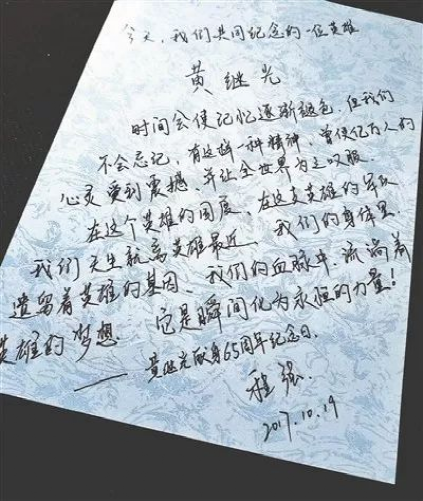 今天，我们共同纪念的一位英雄
黄继光
时间会使记忆逐渐褪色，但我们
不会忘记，有这样一种精神，曾使亿万人的
心灵受到震撼，并让全世界为之叹服。
在这个英雄的国度、在这支英雄的军队
我们天生就离英雄最近、我们的身体里
遗留着英雄的基因、我们的血脉中流淌着
英雄的梦想 它是瞬间化为永恒的力量！
——黄继光献身65周年纪念日。
程强.
2017.10.19